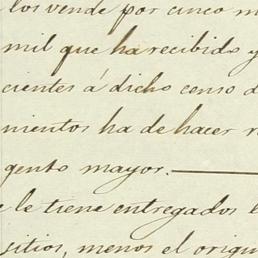 los vende por cinco m
mil que ha recibido y
cientes á dicho censo d
mientos ha de hacer r
gento mayor.—
e le tiene entregados l
sitios, menos el origin